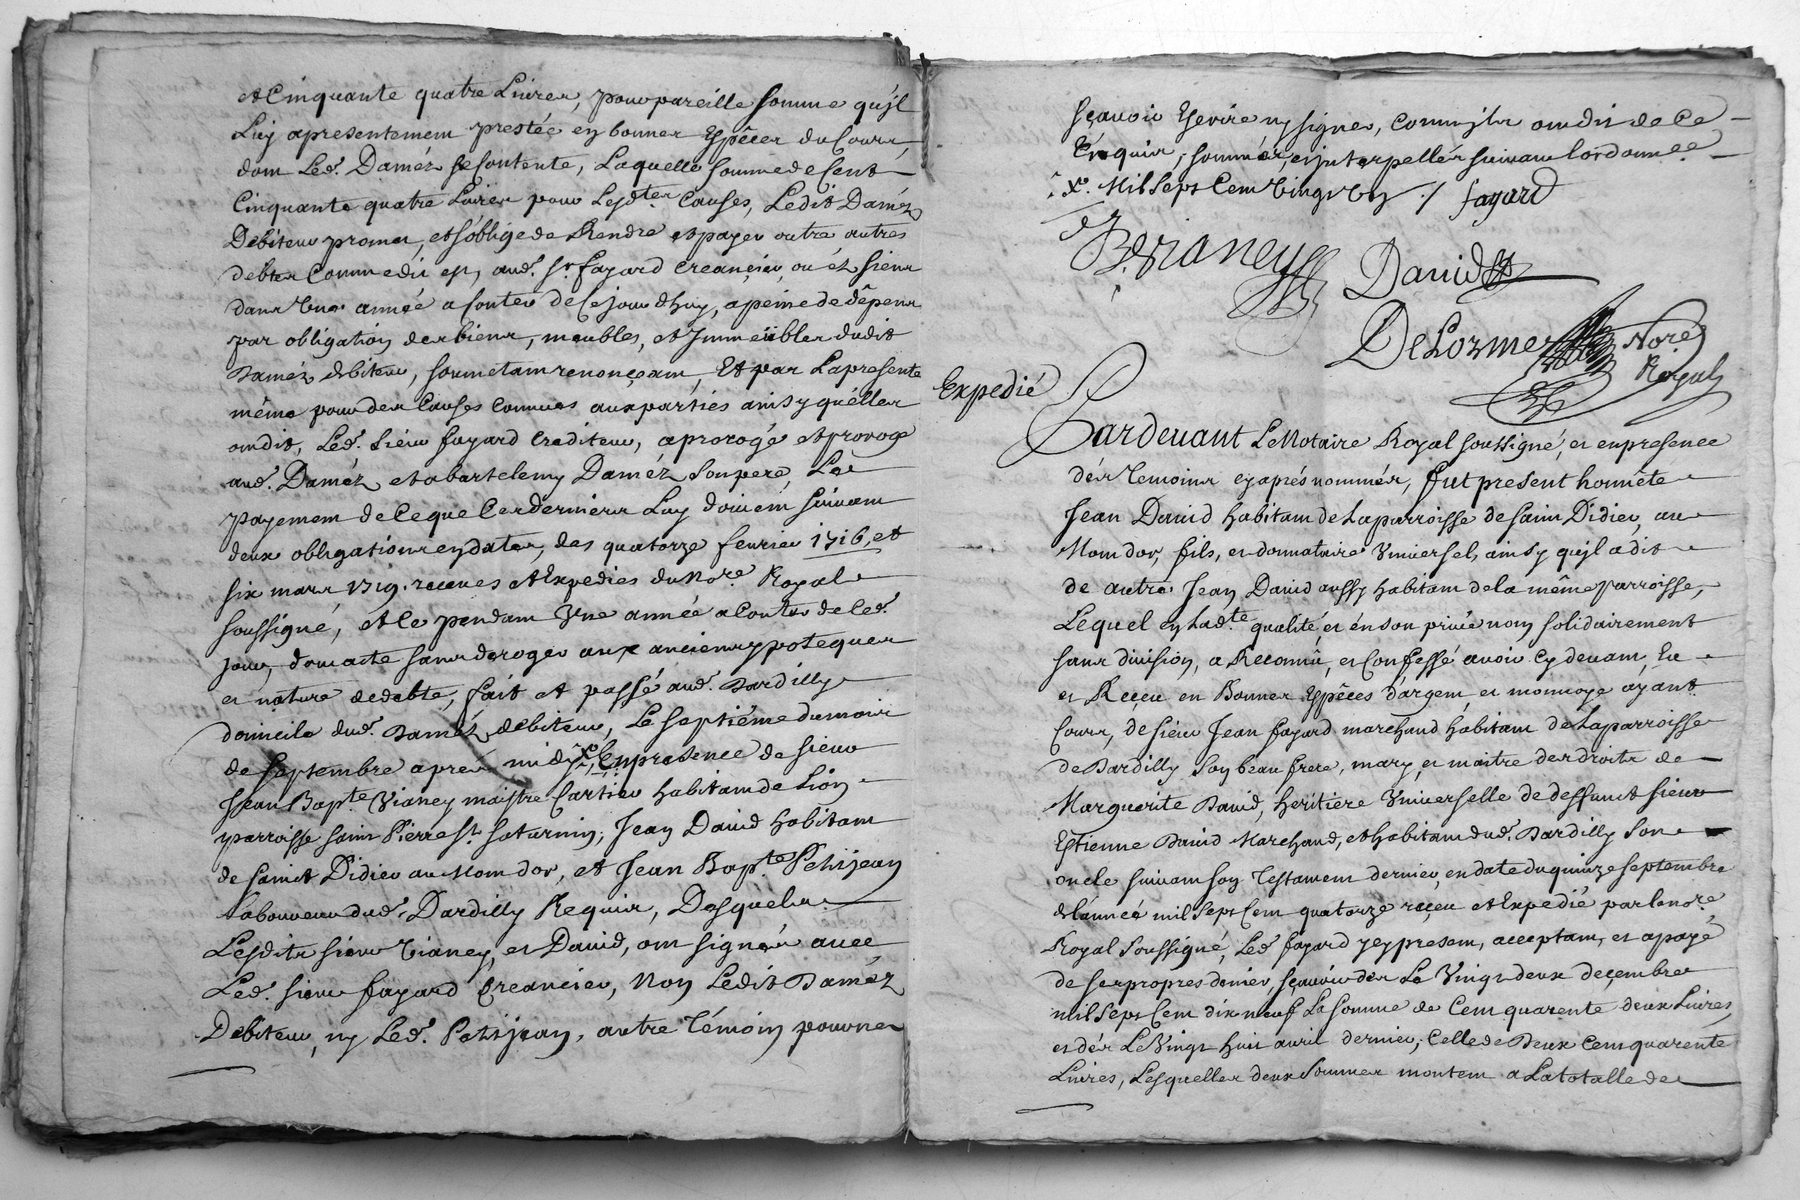 et Cinquante quatre Livres, pour pareille somme qu'jl
Luy a presentement prestée en bonnes Especes du Cours,
dont Led. Daméz se Contente, Laquelle somme de Cent
Cinquante quatre Livres pour Lesdtes Causes, Ledit Daméz
Débiteur promet, et s'oblige de Rendre et payer outre autres
debtes Comme dit est, aud. Sr. fayard Creancier, ou és siens
dans Une année a Conter de Ce jourdhuy, a peine de dépens
par obligation des biens, meubles, et Jmmeübles dudit
Daméz debiteur, soumetant renonçeant, Et par La presente
même pour des Causes Connues aux partiés ainsy quélles
ont dit, Led. Sieur fayard Crediteur, a prorogé et proroge
aud. Daméz et a bartelemy Daméz son pere, Le
payement de Ce que Ces derniers Luy doivent suivant
deux obligations en dates, des quatorze fevrier 1716, et
six mars 1719. recues et Expediés du Nore. Royal
soussigné, et Ce pendant Vne année a Conter de Ced.
jour, dont acte sans deroger aux anciens ypoteques
et nature de debte, fait et passé aud. Dardilly
domicile dud. Daméz debiteur, Le septiéme du mois
de septembre apres midy x. En presence de sieur
Jean Bapte Vianey maistre Cartier habitant de Lion
parroisse saint Pierre St. Saturnin, Jean David habitant
de sainct Didier au Mom dor, et Jean Bapte. Petitjean
Laboureur dud. Dardilly Requis, Desquels
Lesdits sieur Vianey, et David, ont signés avec
Led. sieur fayard Creancier, Non Ledit Daméz
Débiteur, ny Led. Petitjean, autre témoin pour ne
sçavoir Escrire ny signer, Comm'jls ont dit de Ce
Enquis, sommés, et jnterpellés suivant lordonnce.
x. Mil sept Cent Vingt Un ./ fayard
B. Vianey
David
DeLorme Nore
Royal
Expedié
Pardevant Le Notaire Royal soussigné, et en presence
dés temoins cy aprés nommés, fut present honnête
Jean David habitant de La parroisse de saint Didier, au
Mom dor, fils, et donnataire Vniversel, ainsy qu'jl a dit
de autre Jean David aussy habitant de la même parroisse,
Lequel en Ladte. qualité et én son privé nom solidairement
sans division, a Reconnû, et Confessé avoir Cy devant, Eu
et Reçeu en Bonnes Especes d'argent et monnoye ayant
Cours, de sieur Jean fayard marchand habitant de La parroisse
de Dardilly son beau frere, mary, et maitre des droits de
Marguerite David, heritiere Vniverselle de deffunct sieur
Estienne David Marchand, et habitant dud. Dardilly son
oncle suivant son Testament dernier, en date du quinze septembre
de Lannéé mil sept Cent quatorze reçeu et Expedié par le nore
Royal soussigné, Led. fayard jcy present, acceptant, et a payé
de ses propres deniers sçavoir dés Le Vingt deux deçembre
mil sept Cent dix neuf La somme de Cent quarente deux Livres,
et dés Le Vingt huit avril dernier, Celle de Deux Cent quarente
Livres, Lesquelles deux sommes montent a La totalle de